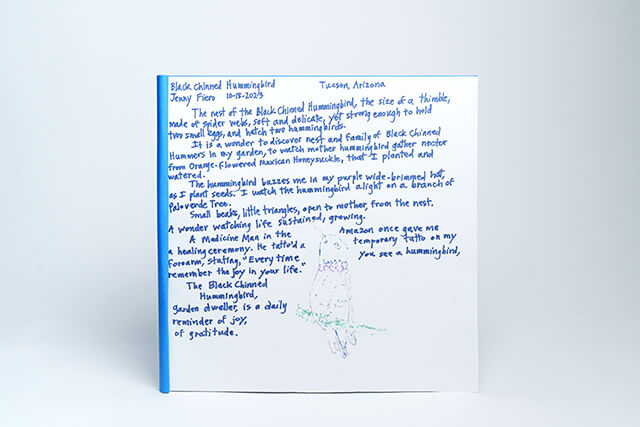 Black Chinned Hummingbird Tucson, Arizona
Jenny Fiero 10-18-2023
The nest of the Black Chinned Hummingbird, the size of a thimble,
made of spider webs, soft and delicate, yet strong enough to hold
two small eggs, and hatch two hummingbirds.
It is a wonder to discover nest and family of Black Chinned
Hummers in my garden, to watch mother hummingbird gather necter
from Orange-Flowered Mexican Honeysuckle, that I planted and
watered.
The hummingbird buzzes me in my purple wide-brimmed hat,
as I plant seeds. I watch the hummingbird alight on a branch of
Paloverde Tree.
Small beaks, little triangles, open to mother, from the nest.
A wonder watching life sustained, growing.
A Medicine Man in the Amazon once gave me
a healing ceremony. He tatto'd a temporary tatto on my
forearm, stating, "Every time you see a hummingbird,
remember the joy in your life."
The Black Chinned
Hummingbird,
garden dweller, is a daily
reminder of joy,
of gratitude.